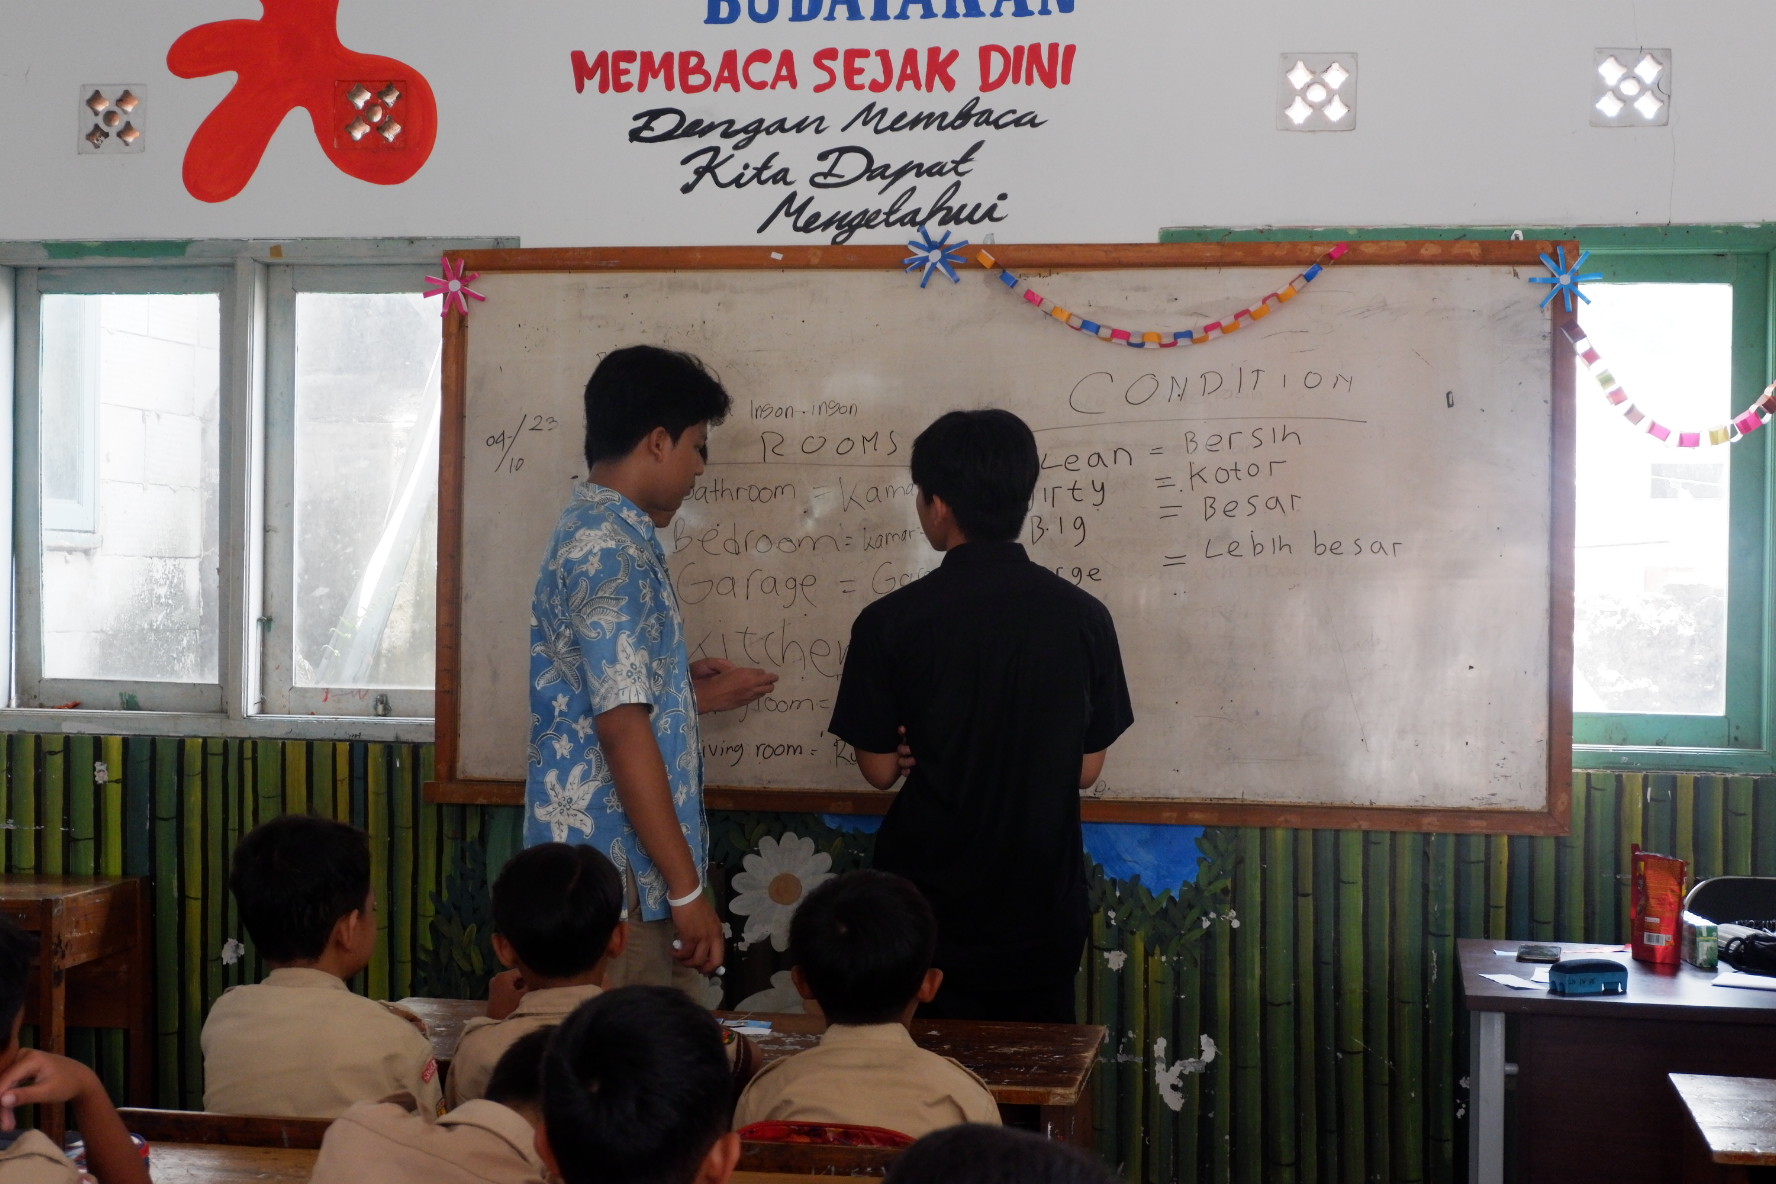 BUDAYAKAN
MEMBACA SEJAK DINI
Dengan Membaca
Kita Dapat
Mengetahui
04/10 23
Inson-inson
ROOMS
athroom = Kama
Bedroom = kamar
Garage = Ga
Kitchen
room =
iving room = Ru
CONDITION
Lean = Bersih
irty = Kotor
Big = Besar
rge = Lebih besar